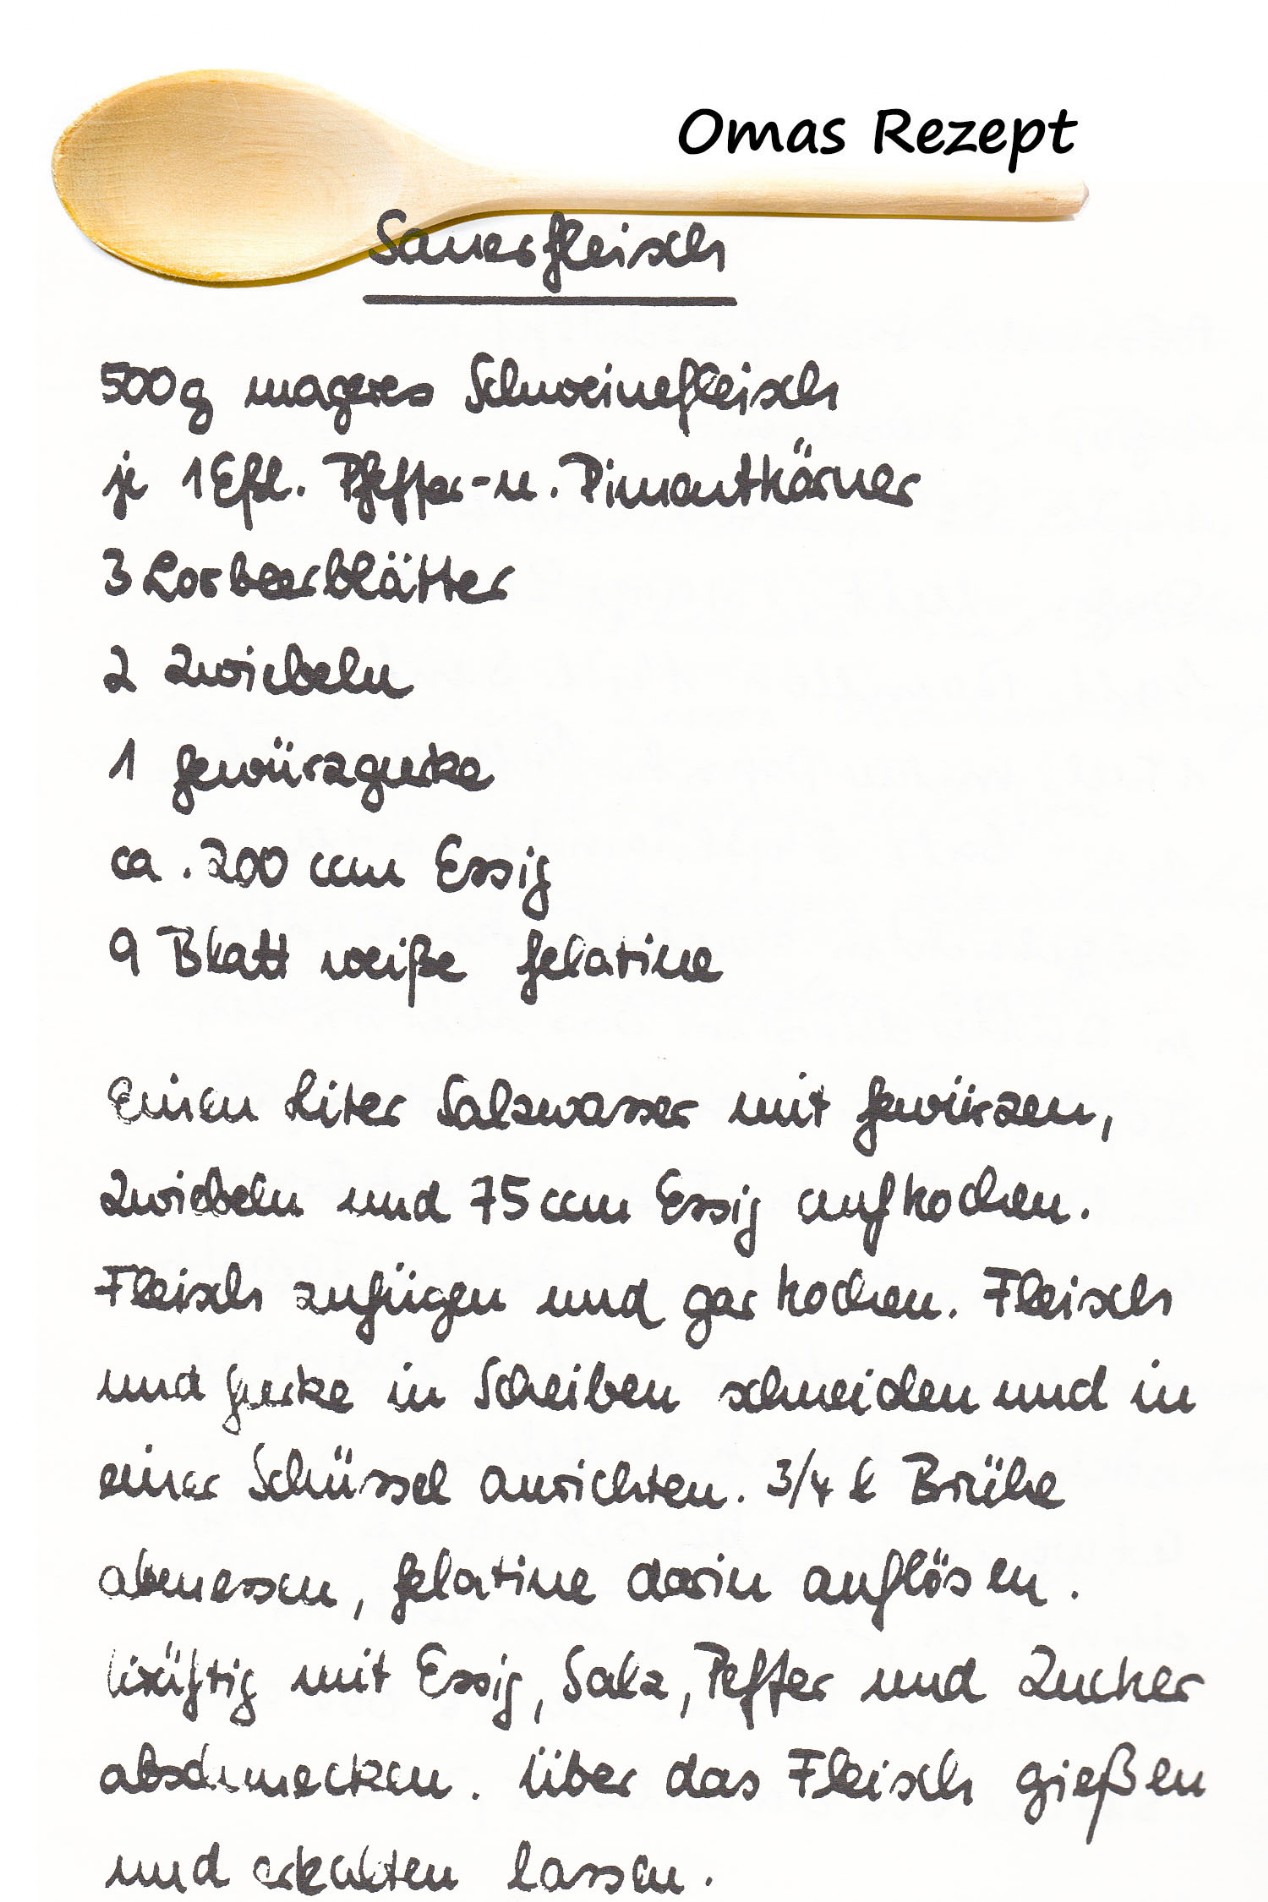 Omas Rezept
Sauerfleisch
500g mageres Schweinefleisch
je 1 Eßl. Pfeffer-u. Pimentkörner
3 Lorbeerblätter
2 Zwiebeln
1 Gewürzgurke
ca. 200 ccm Essig
9 Blatt weiße Gelatine
Einen Liter Salzwasser mit Gewürzen,
Zwiebeln und 75 ccm Essig aufkochen.
Fleisch zufügen und gar kochen. Fleisch
und Gurke in Scheiben schneiden und in
einer Schüssel anrichten. 3/4 l Brühe
abmessen, Gelatine darin auflösen.
Kräftig mit Essig, Salz, Pfeffer und Zucker
abschmecken. Über das Fleisch gießen
und erkalten lassen.